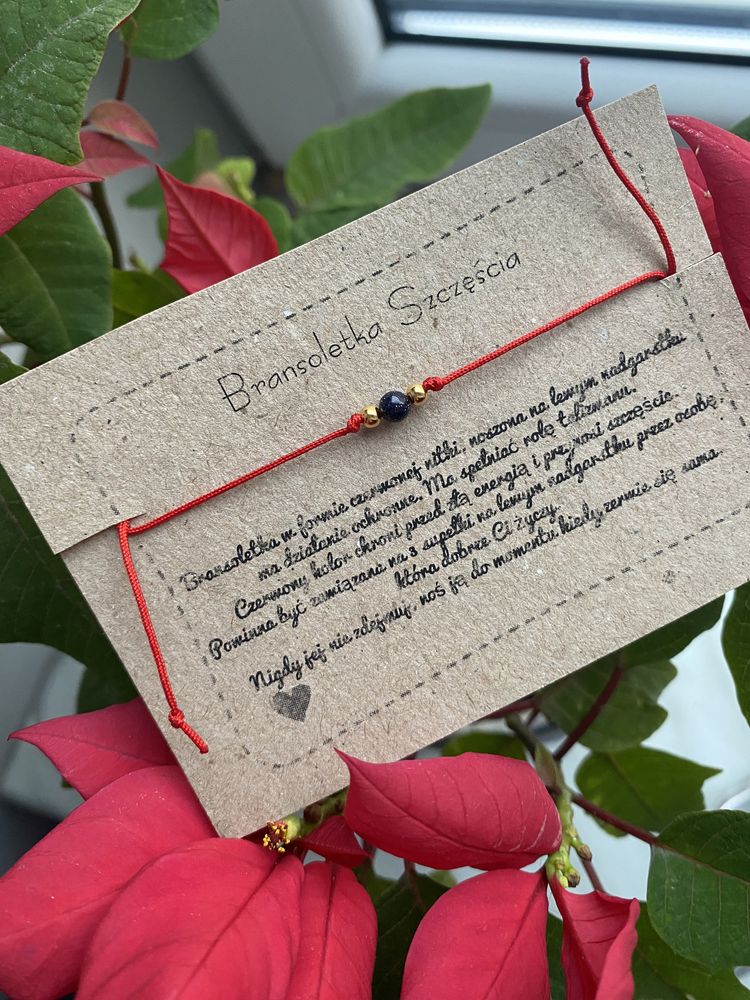 Bransoletka Szczęścia
Bransoletka w formie czerwonej nitki, noszona na lewym nadgarstku
ma działanie ochronne. Ma spełniać rolę talizmanu.
Czerwony kolor chroni przed złą energią i przynosi szczęście.
Powinna być zawiązana na 3 supełki na lewym nadgarstku przez osobę,
która dobrze Ci życzy.
Nigdy jej nie zdejmuj, noś ją do momentu kiedy zerwie się sama.